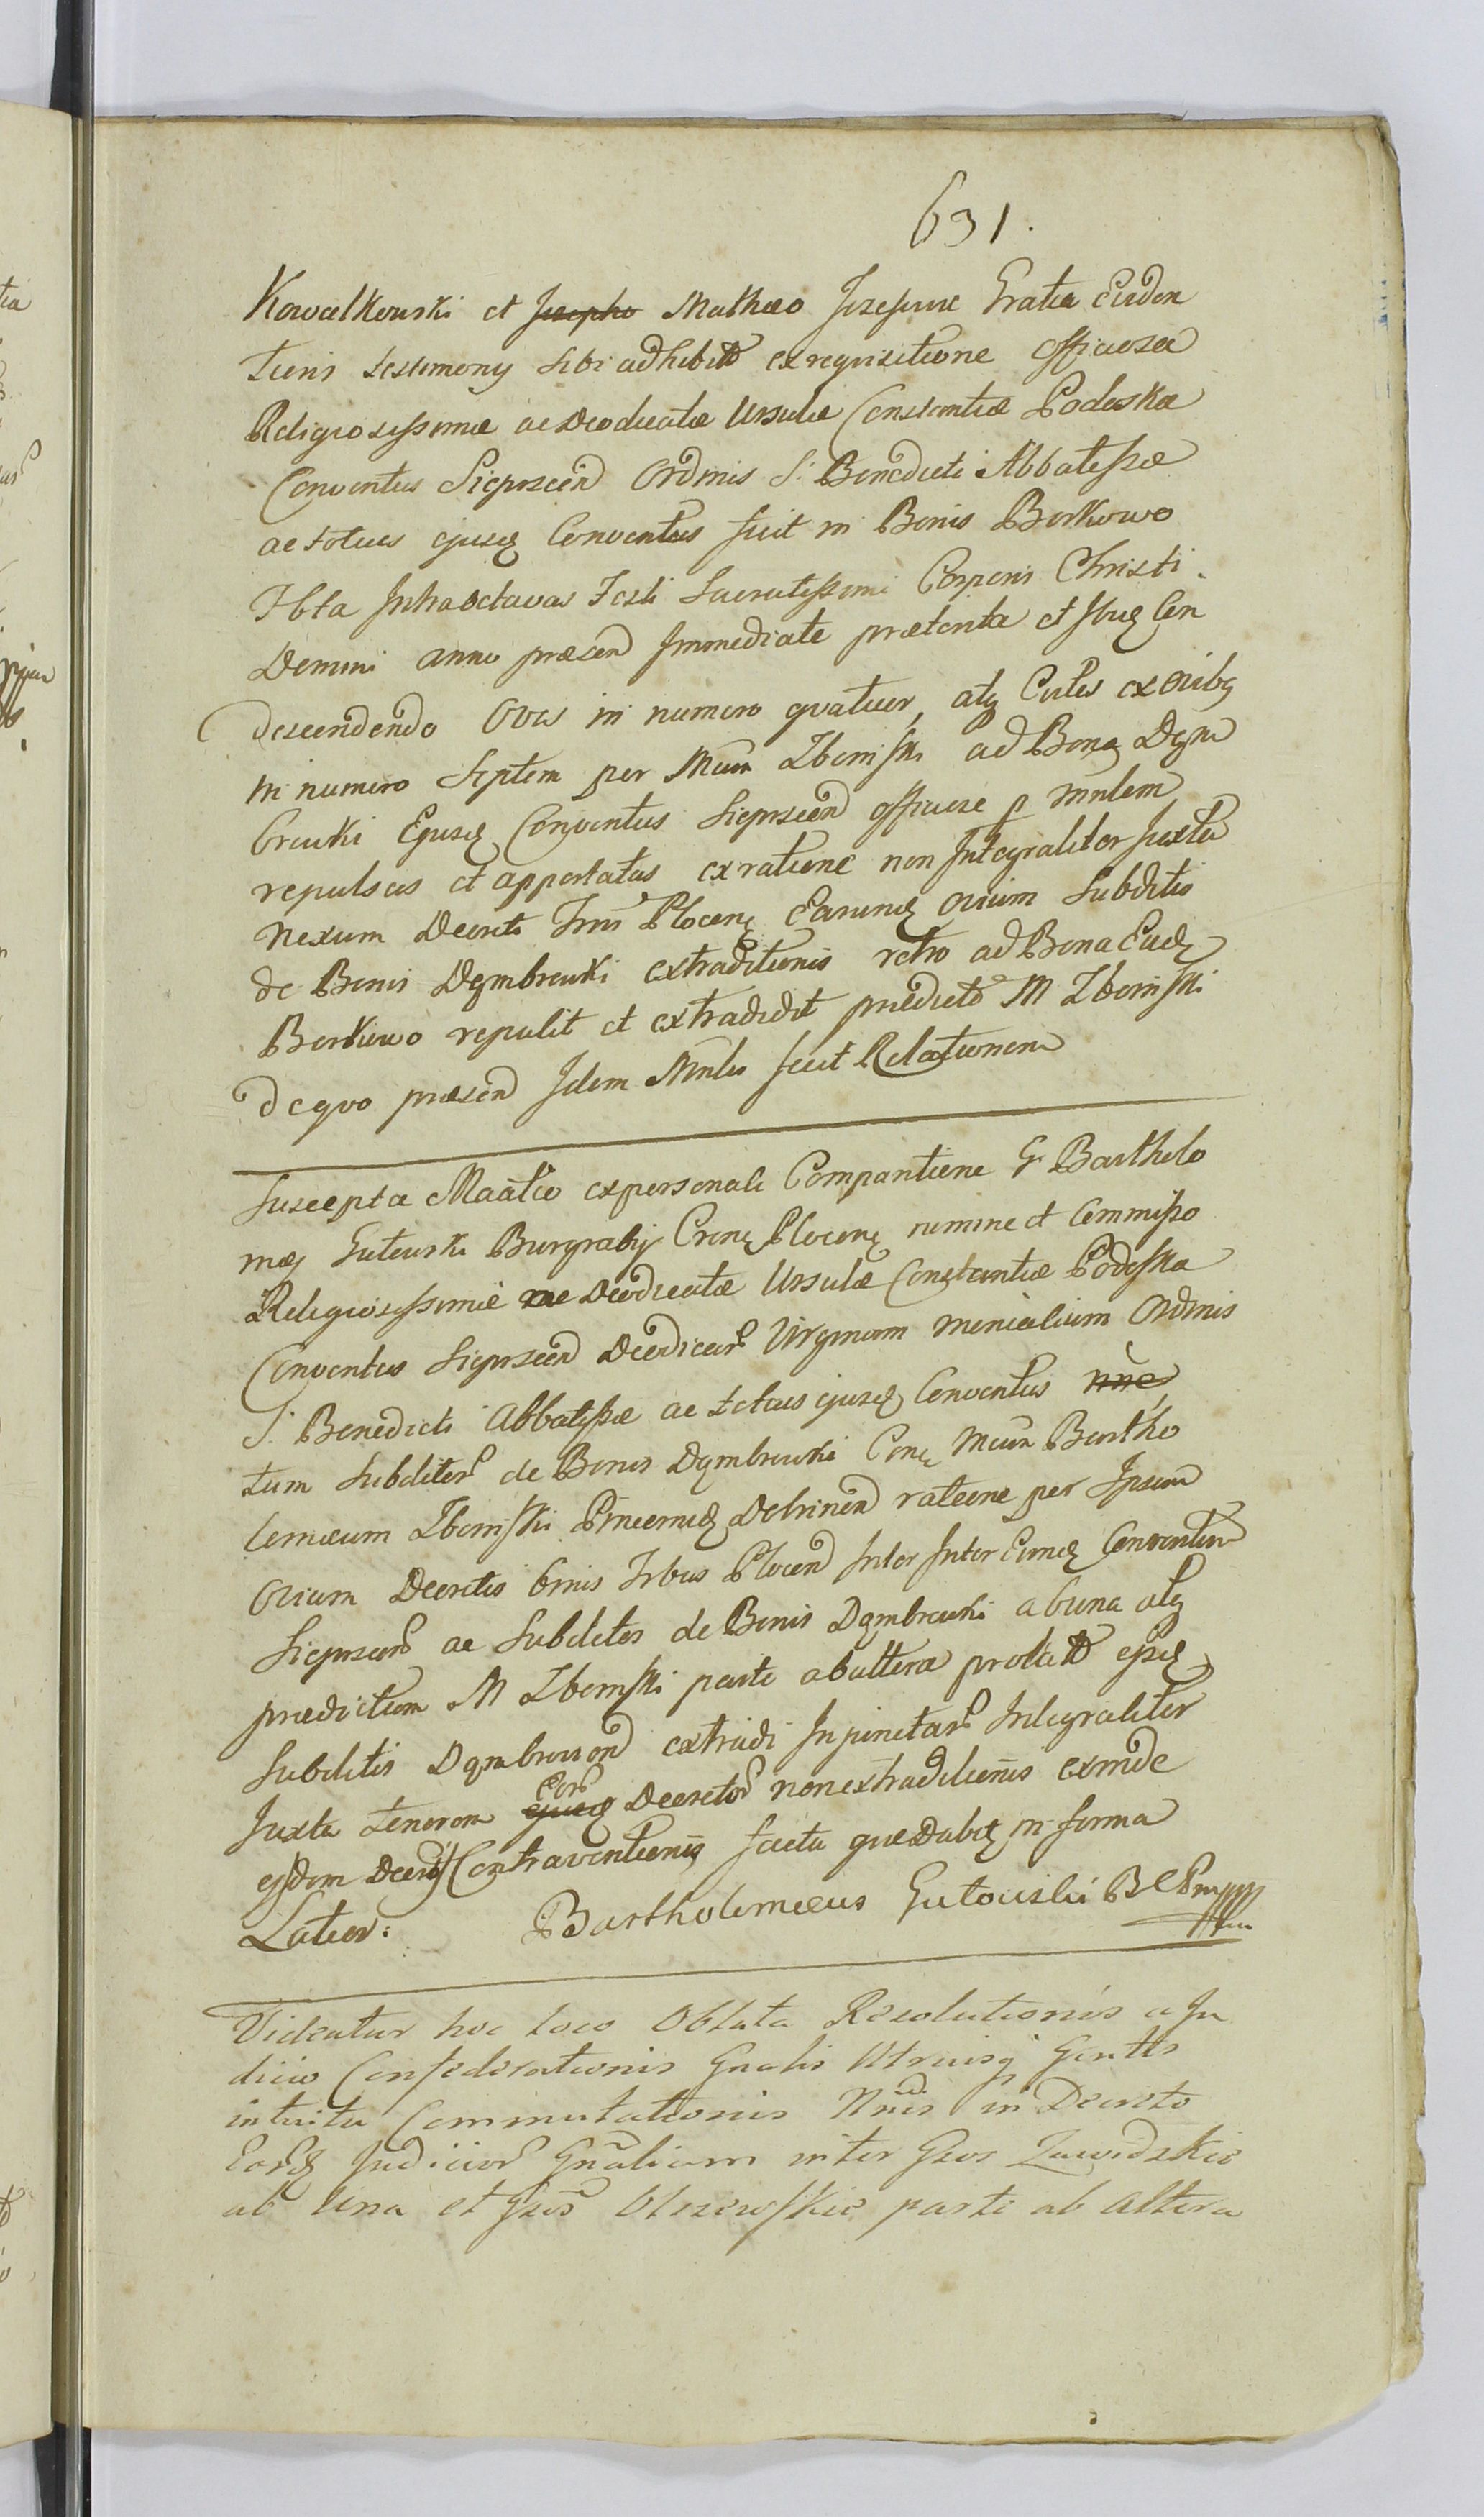 631.
Kowalkowski et Josepho Mathæo Jozefowic Gratia Eviden
tioris testimony sibi adhibito ex requisitione officiosa
Religiosissimæ ac Deodicatæ Ursulæ Constantiæ Podoska
Conventus Sieprscen Ordinis S: Benedicti Abbatissæ
ac totius ejusq Conventus fuit in Bonis Borkowo
Ibta Infra octavas Festi Sacratissimi Corporis Christi
Domini anno præsen Immediate præterita et Ibuq Con
descendendo Oves in numero quatuor, atq Cutes ex ovibq
in numero Septem per Mcum Zboinski ad Bona Dqm
browki Ejusq Conventus Sieprscen officiose p Mnlem
repulsas et apportatas ex ratione non Integraliter Juxta
Nexum Decreti Trnis Plocenq Earundq ovium Subditis
de Bonis Dqmbrowki extraditionis retro ad Bona Eadq
Borkowo repulit et extradidit prædicto M Zboinski
de quo præsen Idem Mnlis fecit Relationem
Suscepta Maatio ex personali Comparitione G. Bartholo
mæj Gutowski Burgrabij Crenq Plocenq nomine et Commisso
Religiosissimæ ac Deodicatæ Ursulæ Constantiæ Podoska
Conventus Sieprscen Deodicar Virginum monialium Ordinis
S: Benedicti Abbatissæ ac totius ejusq Conventus nne
tum Subditor de Bonis Dqmbrowki Conq Mcum Bartho
lomæum Zboinski Pincernuq Dobrinen ratione per Ipsum
Ovium Decretis binis Trbus Plocen Inter Inter Eumq Conventum
Sieprscen ac Subditos de Bonis Dqmbrowki ab una atq
prædictum M Zboinski parte ab altera prolatis ejsdq
Subditis Dqmbrovien extradi Injunctar Integraliter
Juxta tenorem ejusq Eor Decretor non extraditionis exinde
ejsdem Decretis Contraventionis facta quæ Dabitq in forma
Latior: Bartholomæus Gutowski BCPmppp
Videatur hoc loco Oblata Resolutionis a Ju
dicio Confederationis Gnalis Utriusq Gentis
intuitu Commutationis Nnis in Decreto
Eorq Judicior Gnalium inter Gsos Zawidzkie
ab Una et Gsos Olszewskie parte ab Altera